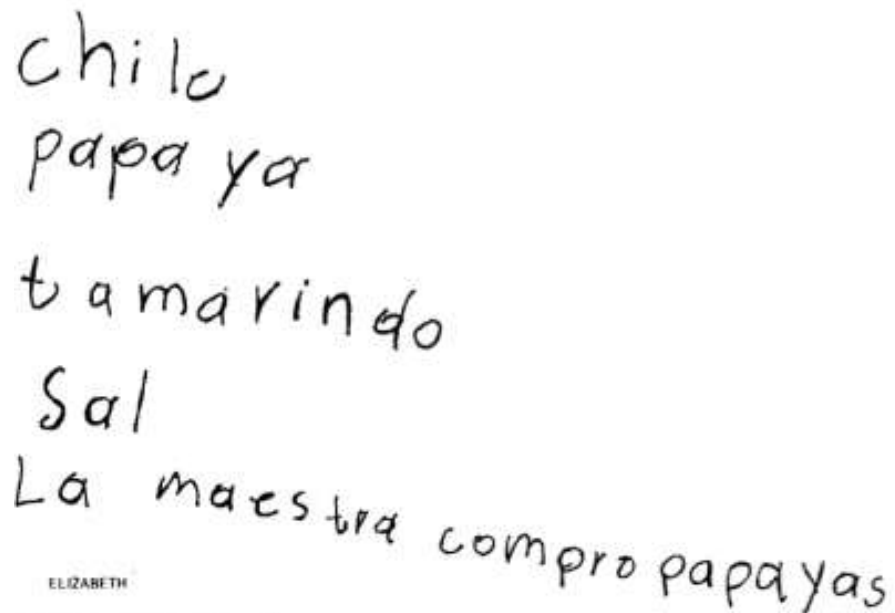 chilc
papa ya
tamarindo
Sal
La maestra compro papayas
ELIZABETH